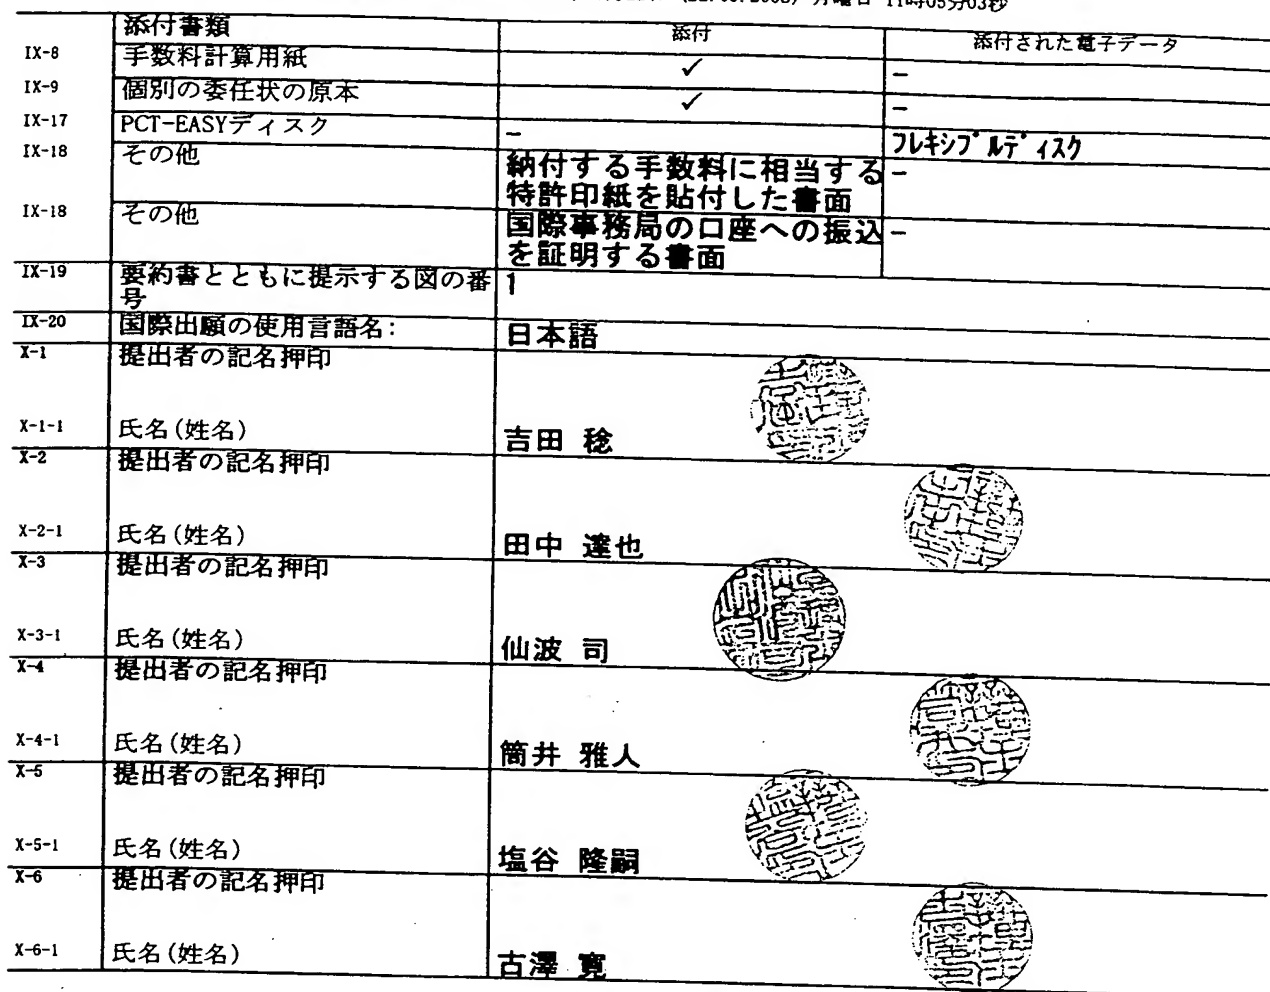 月曜日 11時05分03秒
添付書類 添付 添付された電子データ
IX-8 手数料計算用紙 ✓ -
IX-9 個別の委任状の原本 ✓ -
IX-17 PCT-EASYディスク - フレキシブルディスク
IX-18 その他 納付する手数料に相当する -
特許印紙を貼付した書面
IX-18 その他 国際事務局の口座への振込 -
を証明する書面
IX-19 要約書とともに提示する図の番 1
号
IX-20 国際出願の使用言語名: 日本語
X-1 提出者の記名押印
X-1-1 氏名(姓名) 吉田 稔
X-2 提出者の記名押印
X-2-1 氏名(姓名) 田中 達也
X-3 提出者の記名押印
X-3-1 氏名(姓名) 仙波 司
X-4 提出者の記名押印
X-4-1 氏名(姓名) 筒井 雅人
X-5 提出者の記名押印
X-5-1 氏名(姓名) 塩谷 隆嗣
X-6 提出者の記名押印
X-6-1 氏名(姓名) 古澤 寛